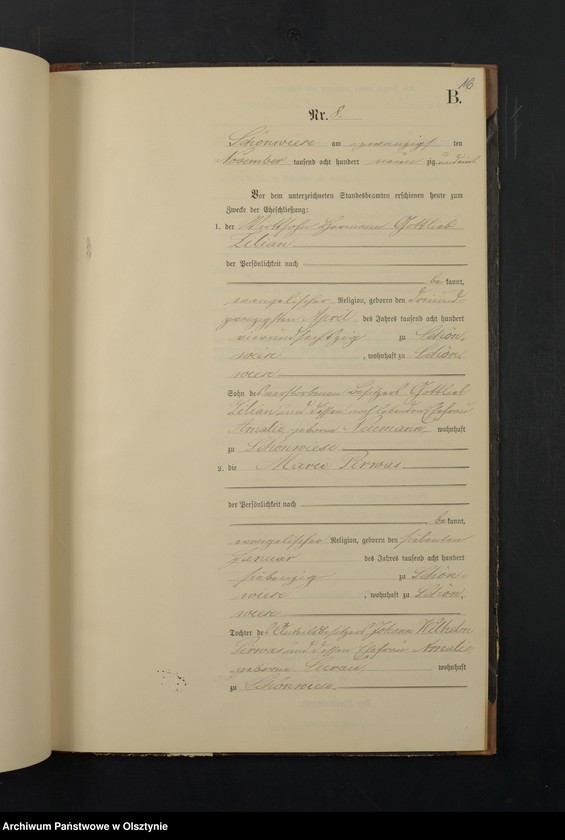 16
B.
Nr. 8.
Schönwiese am zwanzigsten
November tausend acht hundert neunzig und
Vor dem unterzeichneten Standesbeamten erschienen heute zum
Zwecke der Eheschließung:
1. der Wirthssohn Hermann Gottlieb
Zilian
der Persönlichkeit nach
bekannt,
evangelischer Religion, geboren den dreiund-
zwanzigsten April des Jahres tausend acht hundert
vierundsechzig zu Schön-
wiese, wohnhaft zu Schön-
wiese
Sohn des verstorbenen Besitzers Gottlieb
Zilian und dessen noch lebenden Ehefrau
Amalie geborne Neumann wohnhaft
zu Schönwiese
2. die Marie Perwas
der Persönlichkeit nach
bekannt,
evangelischer Religion, geboren den siebenten
Januar des Jahres tausend acht hundert
siebenzig zu Schön-
wiese, wohnhaft zu Schön-
wiese
Tochter des Besitzers Johann Wilhelm
Perwas und dessen Ehefrau Amalie
geborne wohnhaft
zu Schönwiese
Archiwum Państwowe w Olsztynie